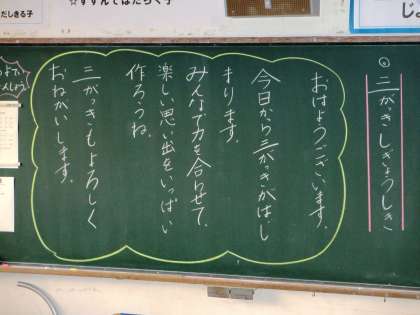 だしきる子
☆すすんではたらく子
じょ
◎三がっきしぎょうしき
おはようございます。
今日から三がっきがはじ
まります。
みんなで力を合わせて、
楽しい思い出をいっぱい
作ろうね。
三がっきもよろしく
おねがいします。